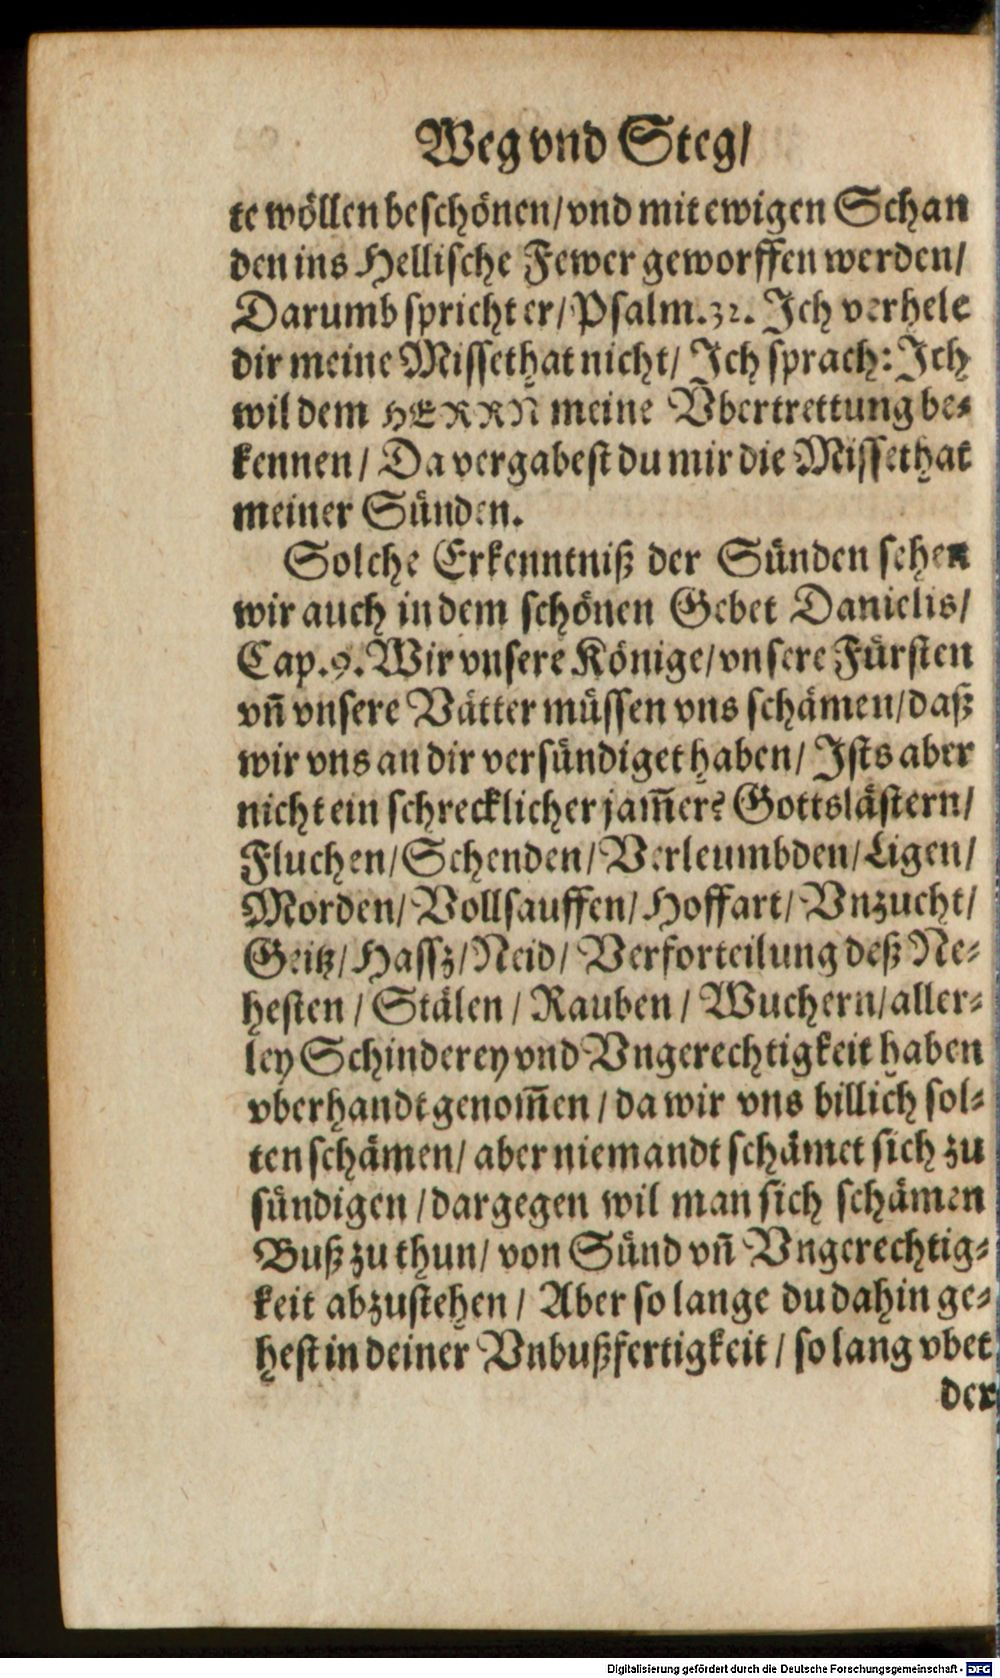 Weg vnd Steg/
te wöllen beschönen/ vnd mit ewigen Schan
den ins Hellische Fewer geworffen werden/
Darumb spricht er/ Psalm. 32. Ich verhele
dir meine Missethat nicht/ Ich sprach: Ich
wil dem HERRN meine Vbertrettung be⸗
kennen/ Da vergabest du mir die Missethat
meiner Sünden.
Solche Erkenntniß der Sünden sehen
wir auch in dem schönen Gebet Danielis/
Cap. 9. Wir vnsere Könige/ vnsere Fürsten
vñ vnsere Vätter müssen vns schämen/ daß
wir vns an dir versündiget haben/ Ists aber
nicht ein schrecklicher jam̃er? Gottslästern/
Fluchen/ Schenden/ Verleumbden/ Ligen/
Morden/ Vollsauffen/ Hoffart/ Vnzucht/
Geitz/ Hassz/ Neid/ Verforteilung deß Ne⸗
hesten/ Stälen/ Rauben/ Wuchern/ aller⸗
ley Schinderey vnd Vngerechtigkeit haben
vberhandt genom̃en/ da wir vns billich sol⸗
ten schämen/ aber niemandt schämet sich zu
sündigen/ dargegen wil man sich schämen
Buß zu thun/ von Sünd vñ Vngerechtig⸗
keit abzustehen/ Aber so lange du dahin ge⸗
hest in deiner Vnbußfertigkeit/ so lang vbet
der
Digitalisierung gefördert durch die Deutsche Forschungsgemeinschaft - DFG